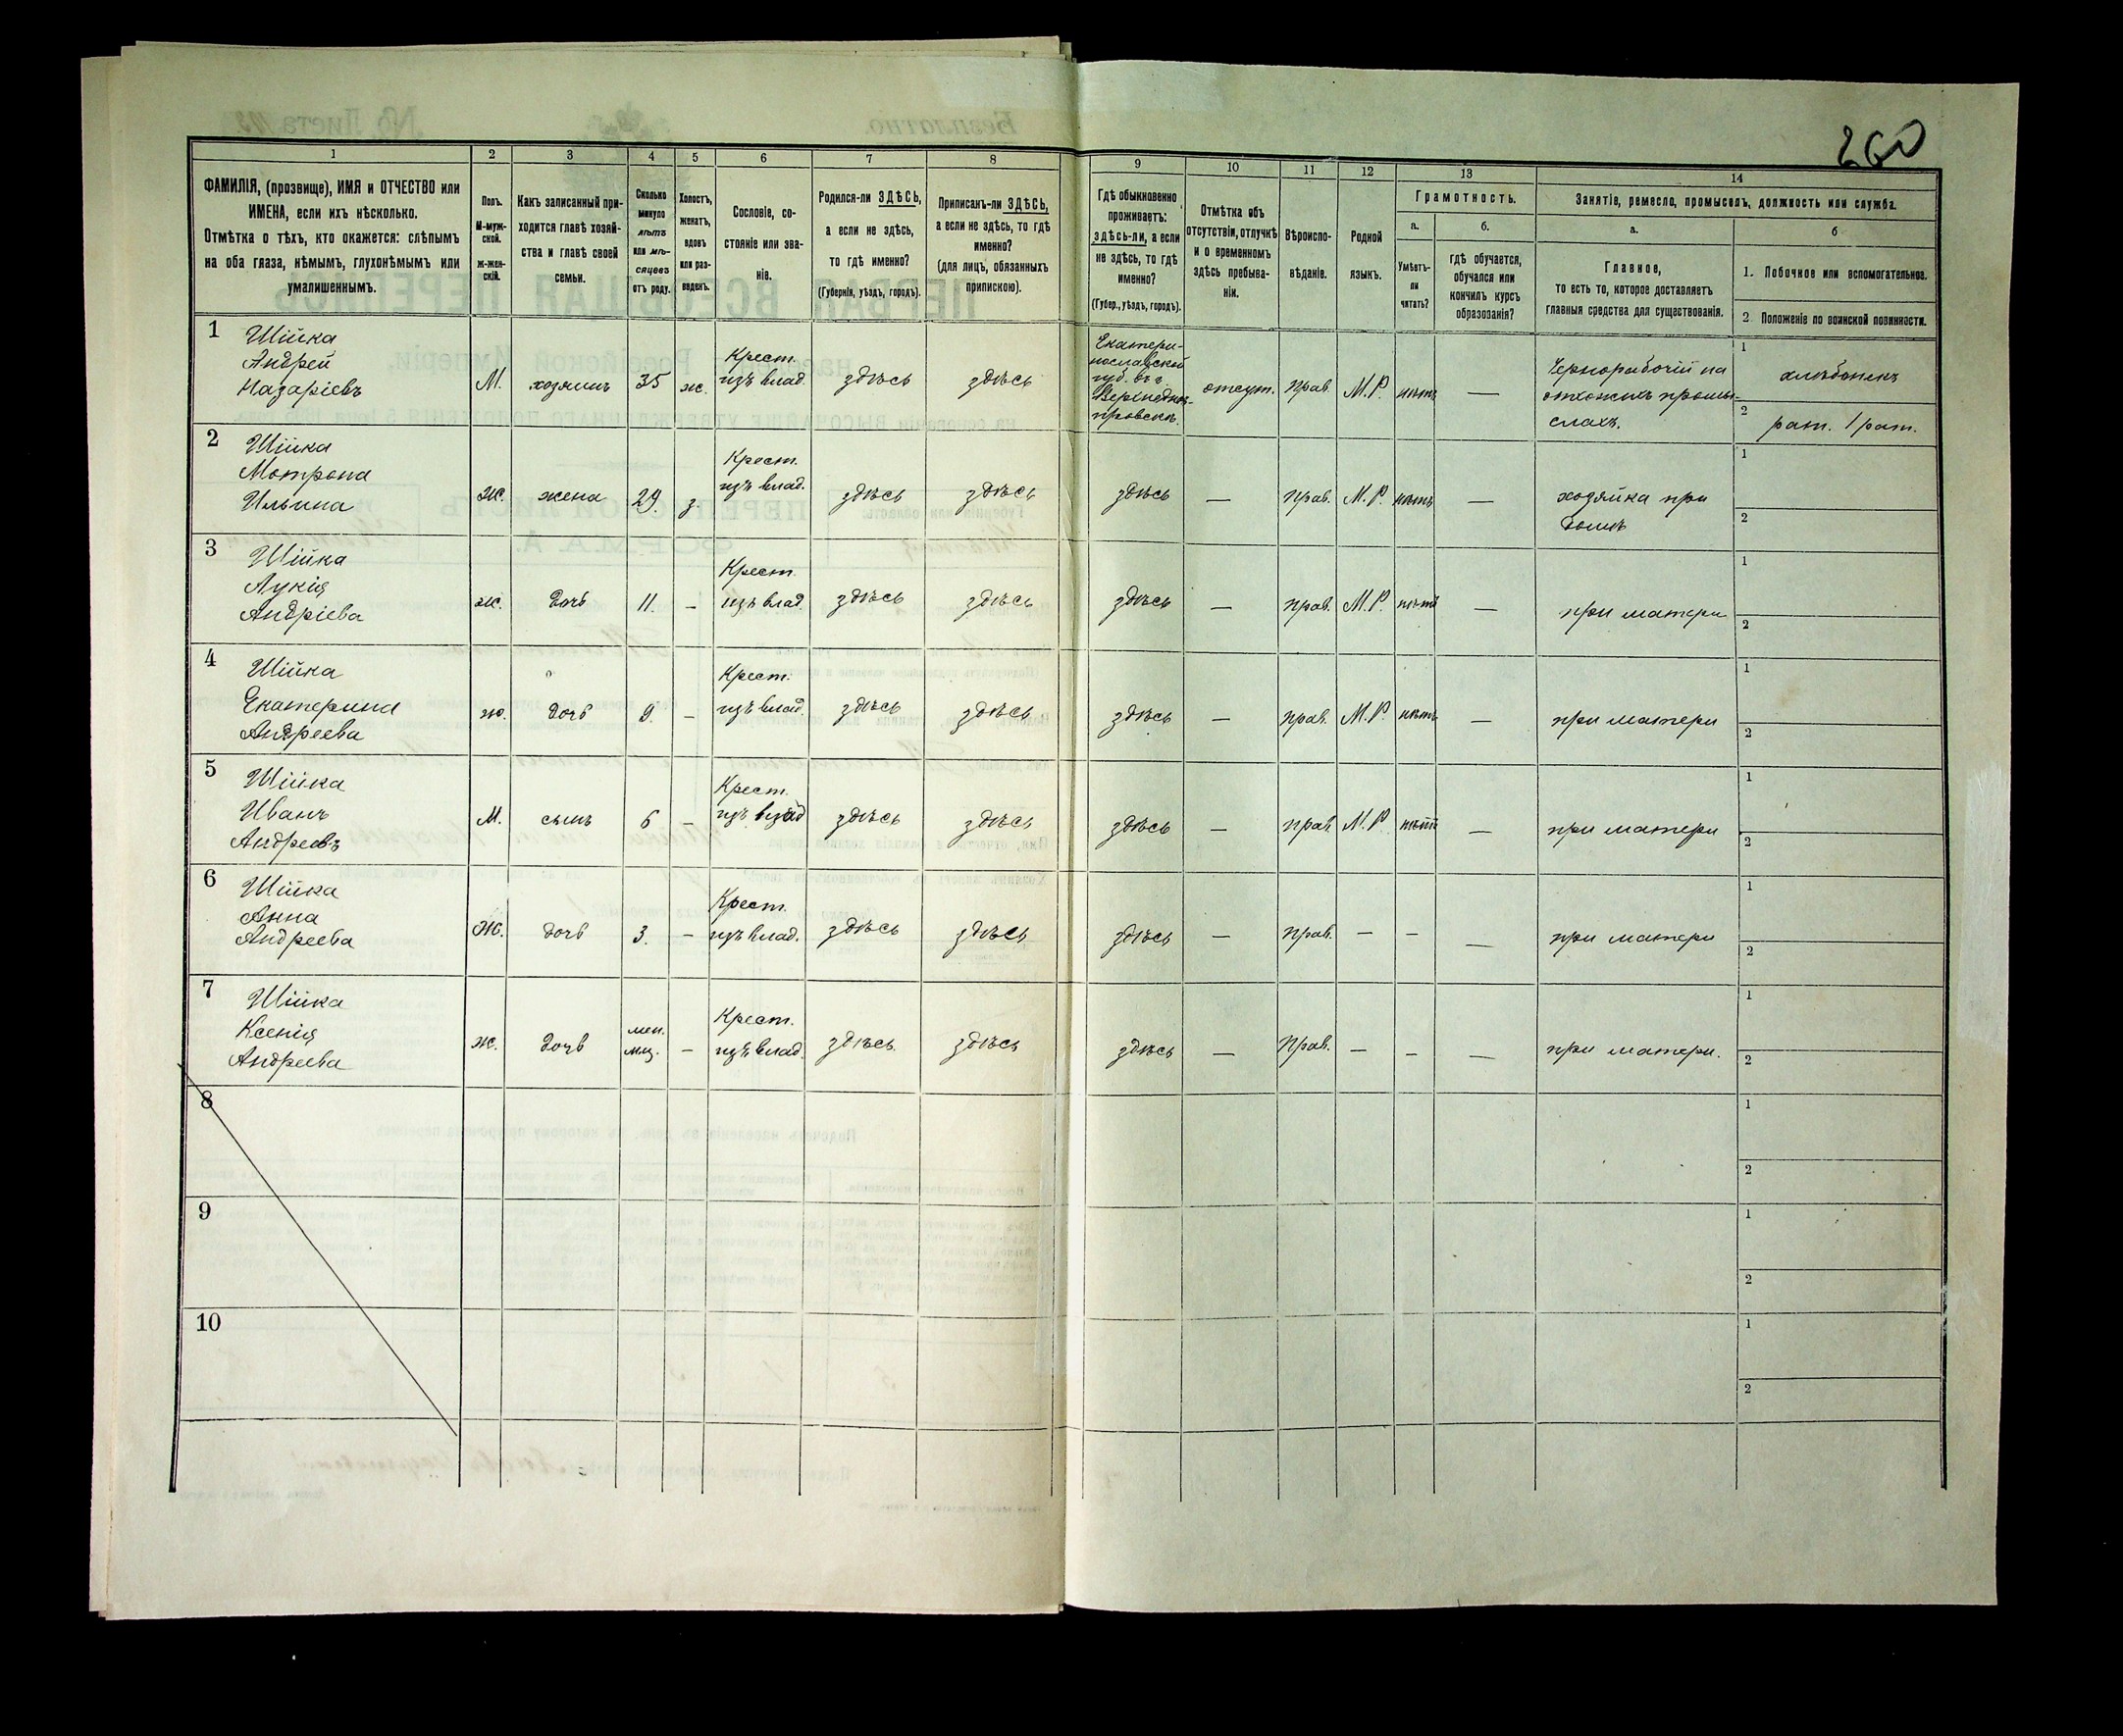 260
1
2
3
4
5
6
7
8
9
10
11
12
13
14
ФАМИЛІЯ, (прозвище), ИМЯ и ОТЧЕСТВО или
ИМЕНА, если ихъ нѣсколько.
Отмѣтка о тѣхъ, кто окажется: слѣпымъ
на оба глаза, нѣмымъ, глухонѣмымъ или
умалишеннымъ.
Полъ.
М-муж-
ской.
Ж-жен-
скій.
Какъ записанный при-
ходится главѣ хозяй-
ства и главѣ своей
семьи.
Сколько
минуло
лѣтъ
или мѣ-
сяцевъ
отъ роду.
Холостъ,
женатъ,
вдовъ
или раз-
веденъ.
Сословіе, со-
стояніе или зва-
ніе.
Родился-ли ЗДѢСЬ,
а если не здѣсь,
то гдѣ именно?
(Губернія, уѣздъ, городъ).
Приписанъ-ли ЗДѢСЬ,
а если не здѣсь, то гдѣ
именно?
(для лицъ, обязанныхъ
припискою).
Гдѣ обыкновенно
проживаетъ:
здѣсь-ли, а если
не здѣсь, то гдѣ
именно?
(Губер., уѣздъ, городъ).
Отмѣтка объ
отсутствіи, отлучкѣ
и о временномъ
здѣсь пребыва-
ніи.
Вѣроиспо-
вѣданіе.
Родной
языкъ.
Грамотность.
а.
б.
Умѣетъ-
ли
читать?
гдѣ обучается,
обучался или
кончилъ курсъ
образованія?
Занятіе, ремесло, промыселъ, должность или служба.
а.
б
Главное,
то есть то, которое доставляетъ
главныя средства для существованія.
1. Побочное или вспомогательное.
2 Положеніе по воинской повинности.
1
Шійка
Андрей
Назаріевъ
М.
хозяинъ
35
ж.
Крест.
изъ влад.
здѣсь
здѣсь
Екатери-
нославской
губ. въ г.
Верхнедне-
провскѣ.
отсут.
Прав.
М.Р.
нѣтъ
—
Чернорабочій на
отхожихъ промы-
слахъ.
1
хлѣбопекъ
2
рат. 1 разр.
2
Шійка
Мотрона
Ильина
Ж.
жена
29.
з.
Крест.
изъ влад.
здѣсь
здѣсь
здѣсь
—
прав.
М.Р.
нѣтъ
—
хозяйка при
домѣ
1
2
3
Шійка
Лукія
Андріева
ж.
дочь
11.
–
Крест.
изъ влад.
здѣсь
здѣсь
здѣсь
—
прав.
М.Р.
нѣтъ
—
при матери
1
2
4
Шійка
Екатерина
Андреева
ж.
дочь
9.
–
Крест.
изъ влад.
здѣсь
здѣсь
здѣсь
—
прав.
М.Р.
нѣтъ
—
при матери
1
2
5
Шійка
Иванъ
Андреевъ
М.
сынъ
6
–
Крест.
изъ влад
здѣсь
здѣсь
здѣсь
—
прав.
М.Р.
нѣтъ
—
при матери
1
2
6
Шійка
Анна
Андреева
Ж.
дочь
3.
–
Крест.
изъ влад.
здѣсь
здѣсь
здѣсь
—
прав.
–
–
—
при матери
1
2
7
Шійка
Ксенія
Андреева
ж.
дочь
мен.
мѣс.
–
Крест.
изъ влад.
здѣсь
здѣсь
здѣсь
—
Прав.
–
–
—
при матери.
1
2
8
1
2
9
1
2
10
1
2